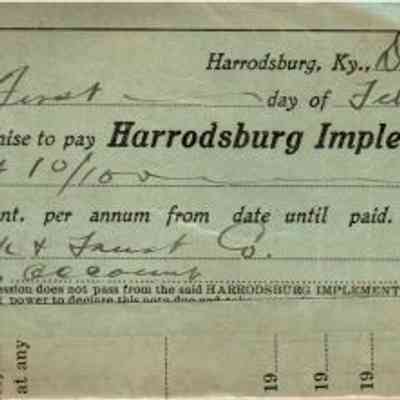 Harrodsburg, Ky., D
First day of Feb
mise to pay Harrodsburg Imple
& 10/100
ent. per annum from date until paid.
& Trust Co.
account
ession does not pass from the said HARRODSBURG IMPLEMENT
power to declare this note due and
at any
19
19
19